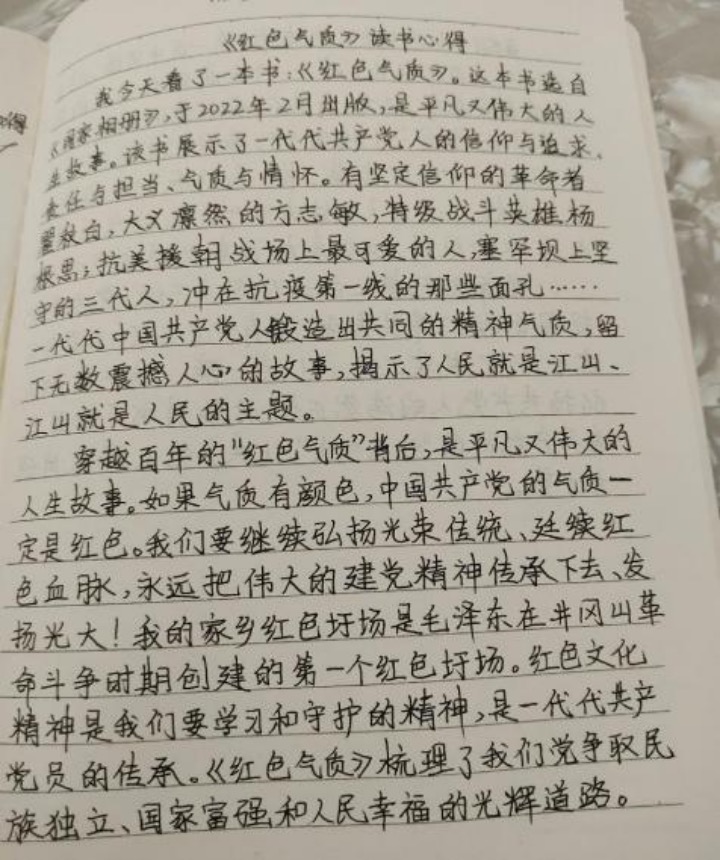 《红色气质》读书心得
我今天看了一本书：《红色气质》。这本书选自
《国家相册》，于2022年2月出版，是平凡又伟大的人
生故事。该书展示了一代代共产党人的信仰与追求、
责任与担当、气质与情怀。有坚定信仰的革命者
瞿秋白，大义凛然的方志敏，特级战斗英雄杨
根思；抗美援朝战场上最可爱的人，塞罕坝上坚
守的三代人，冲在抗疫第一线的那些面孔……
一代代中国共产党人锻造出共同的精神气质，留
下无数震撼人心的故事，揭示了人民就是江山、
江山就是人民的主题。
穿越百年的“红色气质”背后，是平凡又伟大的
人生故事。如果气质有颜色，中国共产党的气质一
定是红色。我们要继续弘扬光荣传统、延续红
色血脉，永远把伟大的建党精神传承下去、发
扬光大！我的家乡红色圩场是毛泽东在井冈山革
命斗争时期创建的第一个红色圩场。红色文化
精神是我们要学习和守护的精神，是一代代共产
党员的传承。《红色气质》梳理了我们党争取民
族独立、国家富强和人民幸福的光辉道路。
得